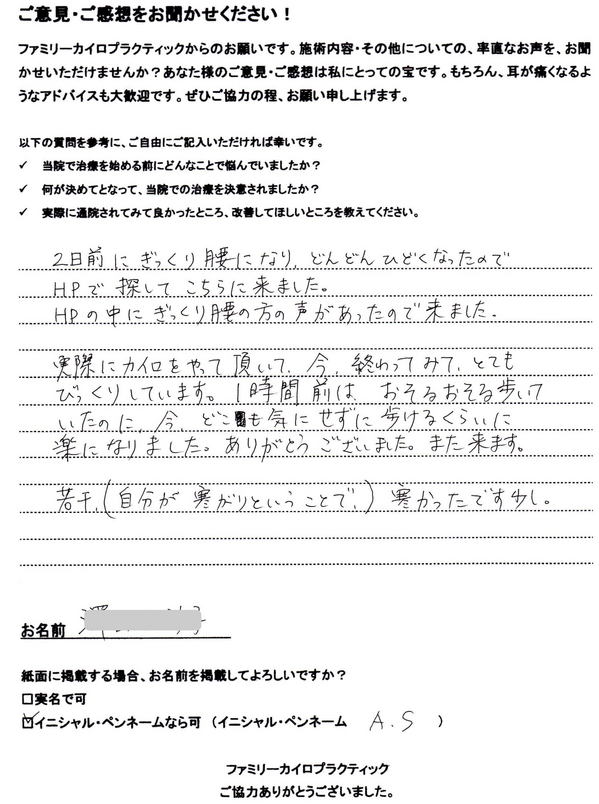 ご意見・ご感想をお聞かせください！
ファミリーカイロプラクティックからのお願いです。施術内容・その他についての、率直なお声を、お聞
かせいただけませんか？あなた様のご意見・ご感想は私にとっての宝です。もちろん、耳が痛くなるよ
うなアドバイスも大歓迎です。ぜひご協力の程、お願い申し上げます。
以下の質問を参考に、ご自由にご記入いただければ幸いです。
✓ 当院で治療を始める前にどんなことで悩んでいましたか？
✓ 何が決めてとなって、当院での治療を決意されましたか？
✓ 実際に通院されてみて良かったところ、改善してほしいところを教えてください。
2日前にぎっくり腰になり、どんどんひどくなったので
HPで探してこちらに来ました。
HPの中にぎっくり腰の方の声があったので来ました。
実際にカイロをやって頂いて、今、終わってみて、とても
びっくりしています。1時間前は、おそるおそる歩いて
いたのに、今、どこも気にせずに歩けるくらいに
楽になりました。ありがとうございました。また来ます。
若干、(自分が寒がりということで、)寒かったです少し。
お名前
紙面に掲載する場合、お名前を掲載してよろしいですか？
□実名で可
☑イニシャル・ペンネームなら可（イニシャル・ペンネーム A.S ）
ファミリーカイロプラクティック
ご協力ありがとうございました。